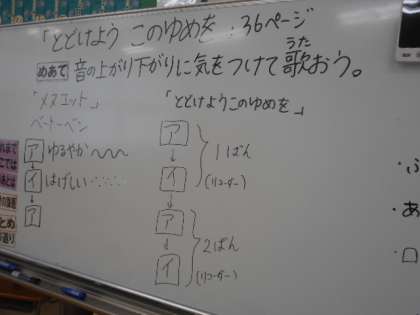 「とどけよう このゆめを」36ページ
めあて 音の上がり下がりに気をつけて歌おう。
うた
「メヌエット」
ベートーベン
ア ゆるやか
↓
イ はげしい
↓
ア
「とどけようこのゆめを」
ア
↓
イ
1ばん
(リコーダー)
↓
ア
↓
イ
2ばん
(リコーダー)
・ふ
・あ
・口